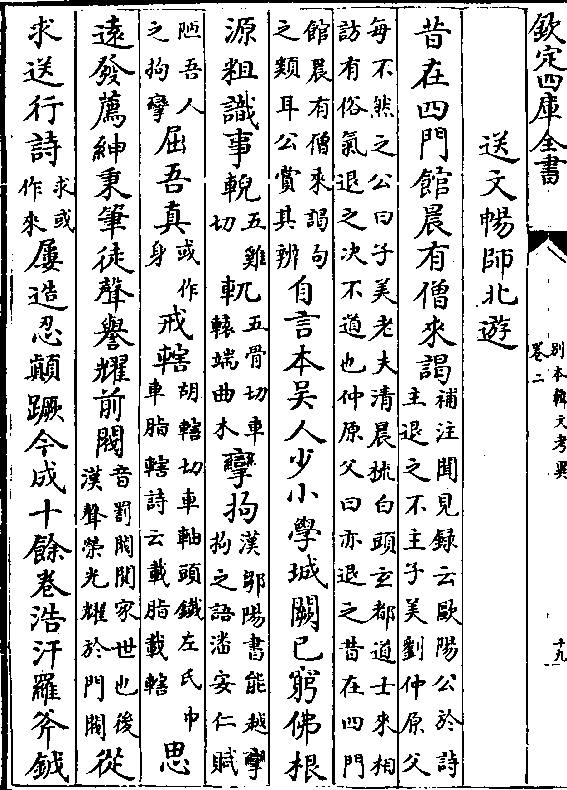 欽定四庫全書
别本韓文考異
卷二
十九
送文暢師北遊
昔在四門館晨有僧來謁補注聞見録云歐陽公於詩主退之不主子美劉仲原父
每不然之公曰子美老夫清晨梳白頭玄都道士來相訪有俗氣退之决不道也仲原父曰亦退之昔在四門
館晨有僧來謁句之類耳公賞其辨自言本吳人少小學城闕已窮佛根
源粗識事輗五雞切軏五骨切車轅端曲木孿拘漢鄒陽書能越孿拘之語潘安仁賦
陋吾人之拘孿屈吾真或作身戒轄胡轄切車軸頭鐵左氏巾車脂轄詩云載脂載轄思
遠發薦紳秉筆徒聲譽耀前閥音罰閥閱家世也後漢聲榮光耀於門閥從
求送行詩求或作來屢造忍顛蹶今成十餘卷浩汗羅斧鉞